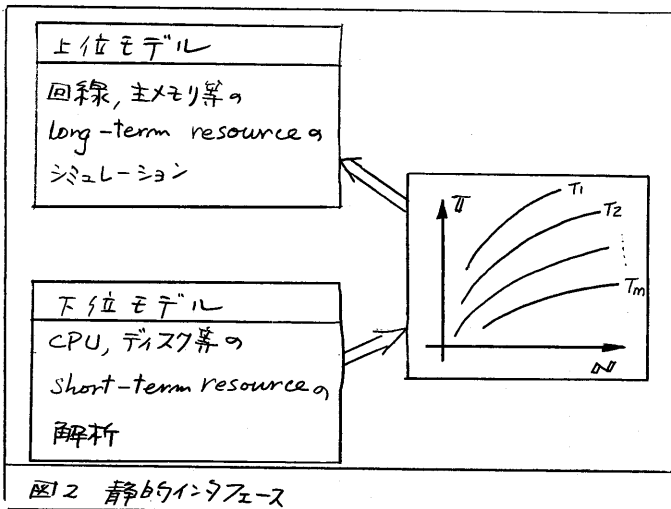 上位モデル
回線,主メモリ等の
long-term resourceの
シミュレーション
T
T1
T2
Tm
N
下位モデル
CPU,ディスク等の
short-term resourceの
解析
図2 静的インタフェース